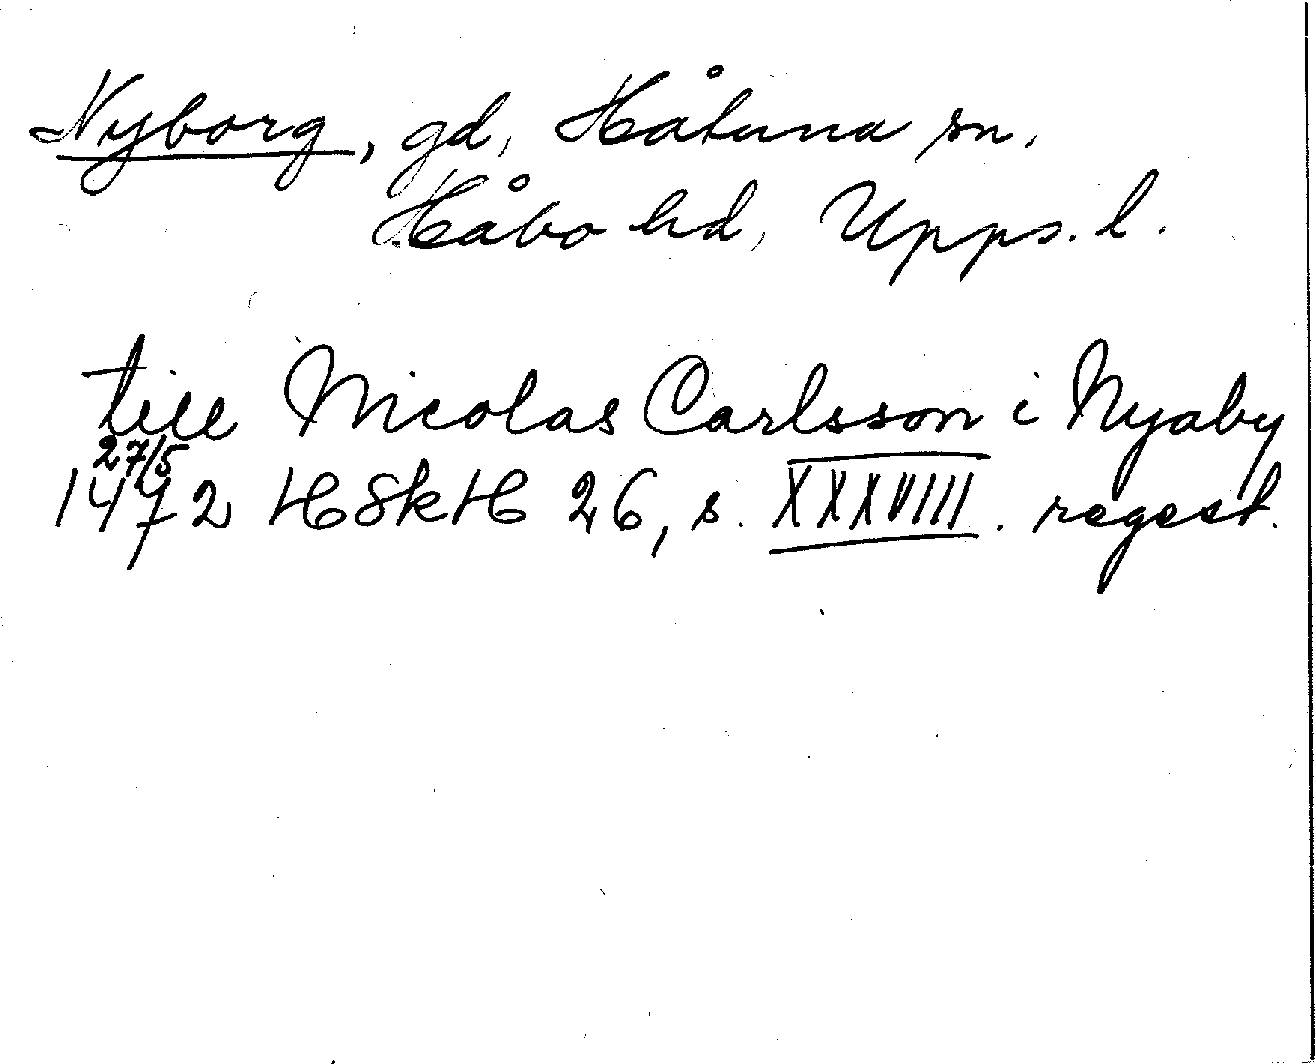 Nyborg, gd, Håtuna sn,
Håbo hd, Upps. l.
till Nicolas Carlsson i Nyaby
27/5
1472 HSkH 26, s. XXXVIII. regest.